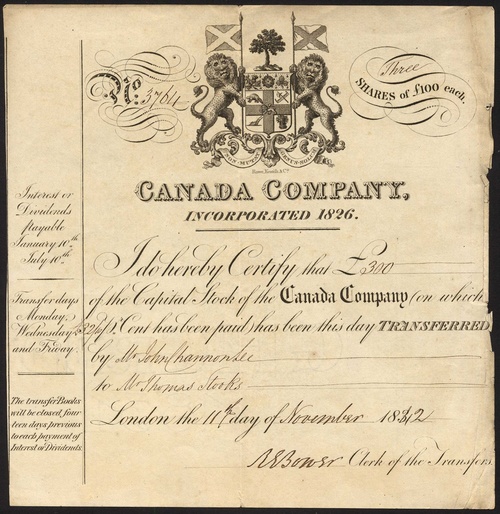 No. 3764
Three
SHARES of £100 each.
NON MUTAT GENUS SOLUM
CANADA COMPANY,
INCORPORATED 1826.
I do hereby Certify that £300
of the Capital Stock of the Canada Company (on which
P Cent has been paid) has been this day TRANSFERRED
by Mr John Channon Lee
to Mr Thomas Stooks
London the 11th day of November 1842
Bower Clerk of the Transfers
Interest or
Dividends
payable
January 10th
July 10th
Transfer days
Monday,
Wednesday
and Friday.
The transfer Books
will be closed four
teen days previous
to each payment of
Interest or Dividends.